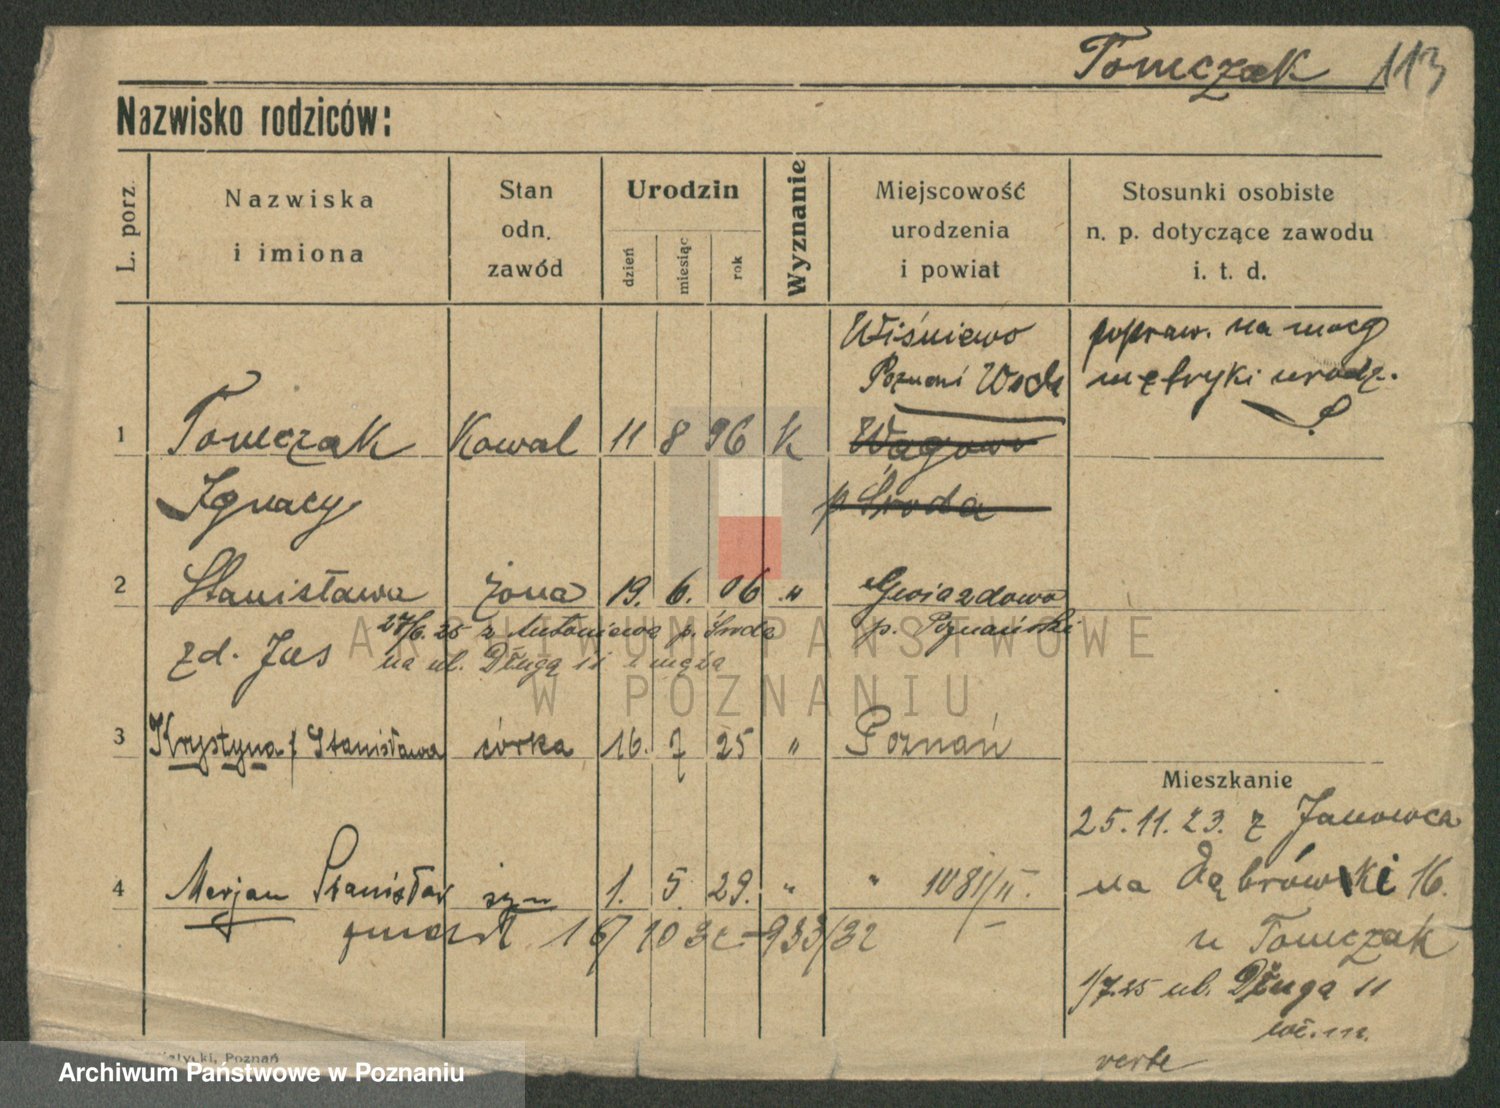 Tomczak 113
Nazwisko rodziców:
L. porz.
Nazwiska
i imiona
Stan
odn.
zawód
Urodzin
dzień
miesiąc
rok
Wyznanie
Miejscowość
urodzenia
i powiat
Stosunki osobiste
n. p. dotyczące zawodu
i. t. d.
Wiśniewo
popraw. na mocy
metryki urodz.
1 Tomczak Kowal 11 8 96 K Wągowo
Ignacy p Środa
2 Stanisława żona 19. 6. 06 " Gwiazdowo
27/6. 25 z Antoniewa p. Środa p. Poznański
zd. Jus na ul. Długą 11 męża
3 Krystyna / Stanisława córka 16. 7 25 " Poznań
Mieszkanie
25.11.23. z Janowca
4 Merjan Stanisław syn 1. 5. 29. " " 1081/II.
na Dąbrówki 16.
zmarł 16/10 32 - 933/32
u Tomczak
1/7.25 ul. Długą 11
verte
Poznań
ARCHIWUM PAŃSTWOWE
W POZNANIU
Archiwum Państwowe w Poznaniu